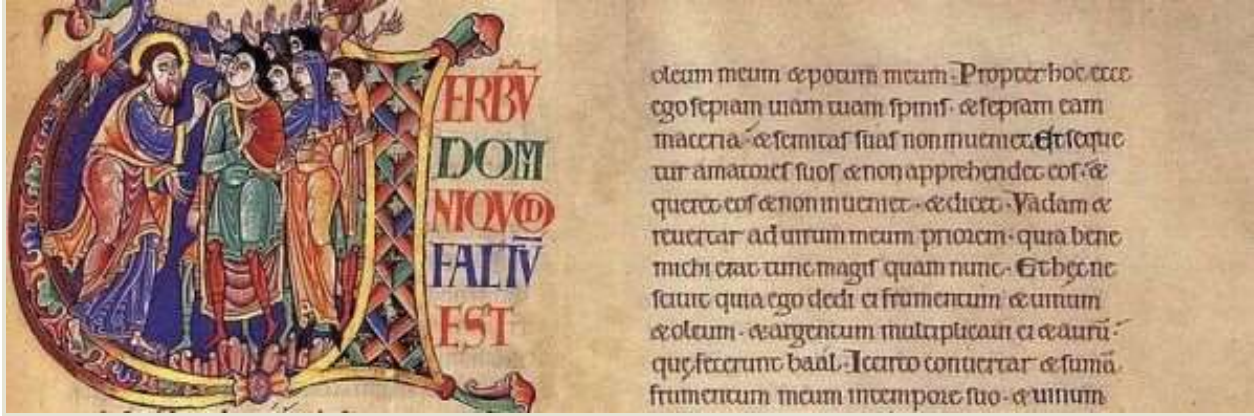 VERBŪ
DOMI
NIQVOD
FACTŪ
EST
oleum meum & potum meum. Propter hoc ecce
ego ſepiam uiam tuam ſpiniſ. & ſepiam eam
maceria. & ſemitaſ ſuaſ non inueniet. Et ſeque
tur amatoreſ ſuoſ & non apprehendet eoſ. &
queret eoſ & non inueniet. & dicet. Vadam &
reuertar ad uirum meum priorem. quia bene
michi erat tunc magiſ quam nunc. Et hęc ne
ſciuit quia ego dedi ei frumentum & uinum
& oleum. & argentum multiplicaui ei & aurū.
quę fecerunt baal. Iccirco conuertar & ſumā
frumentum meum in tempore ſuo. & uinum